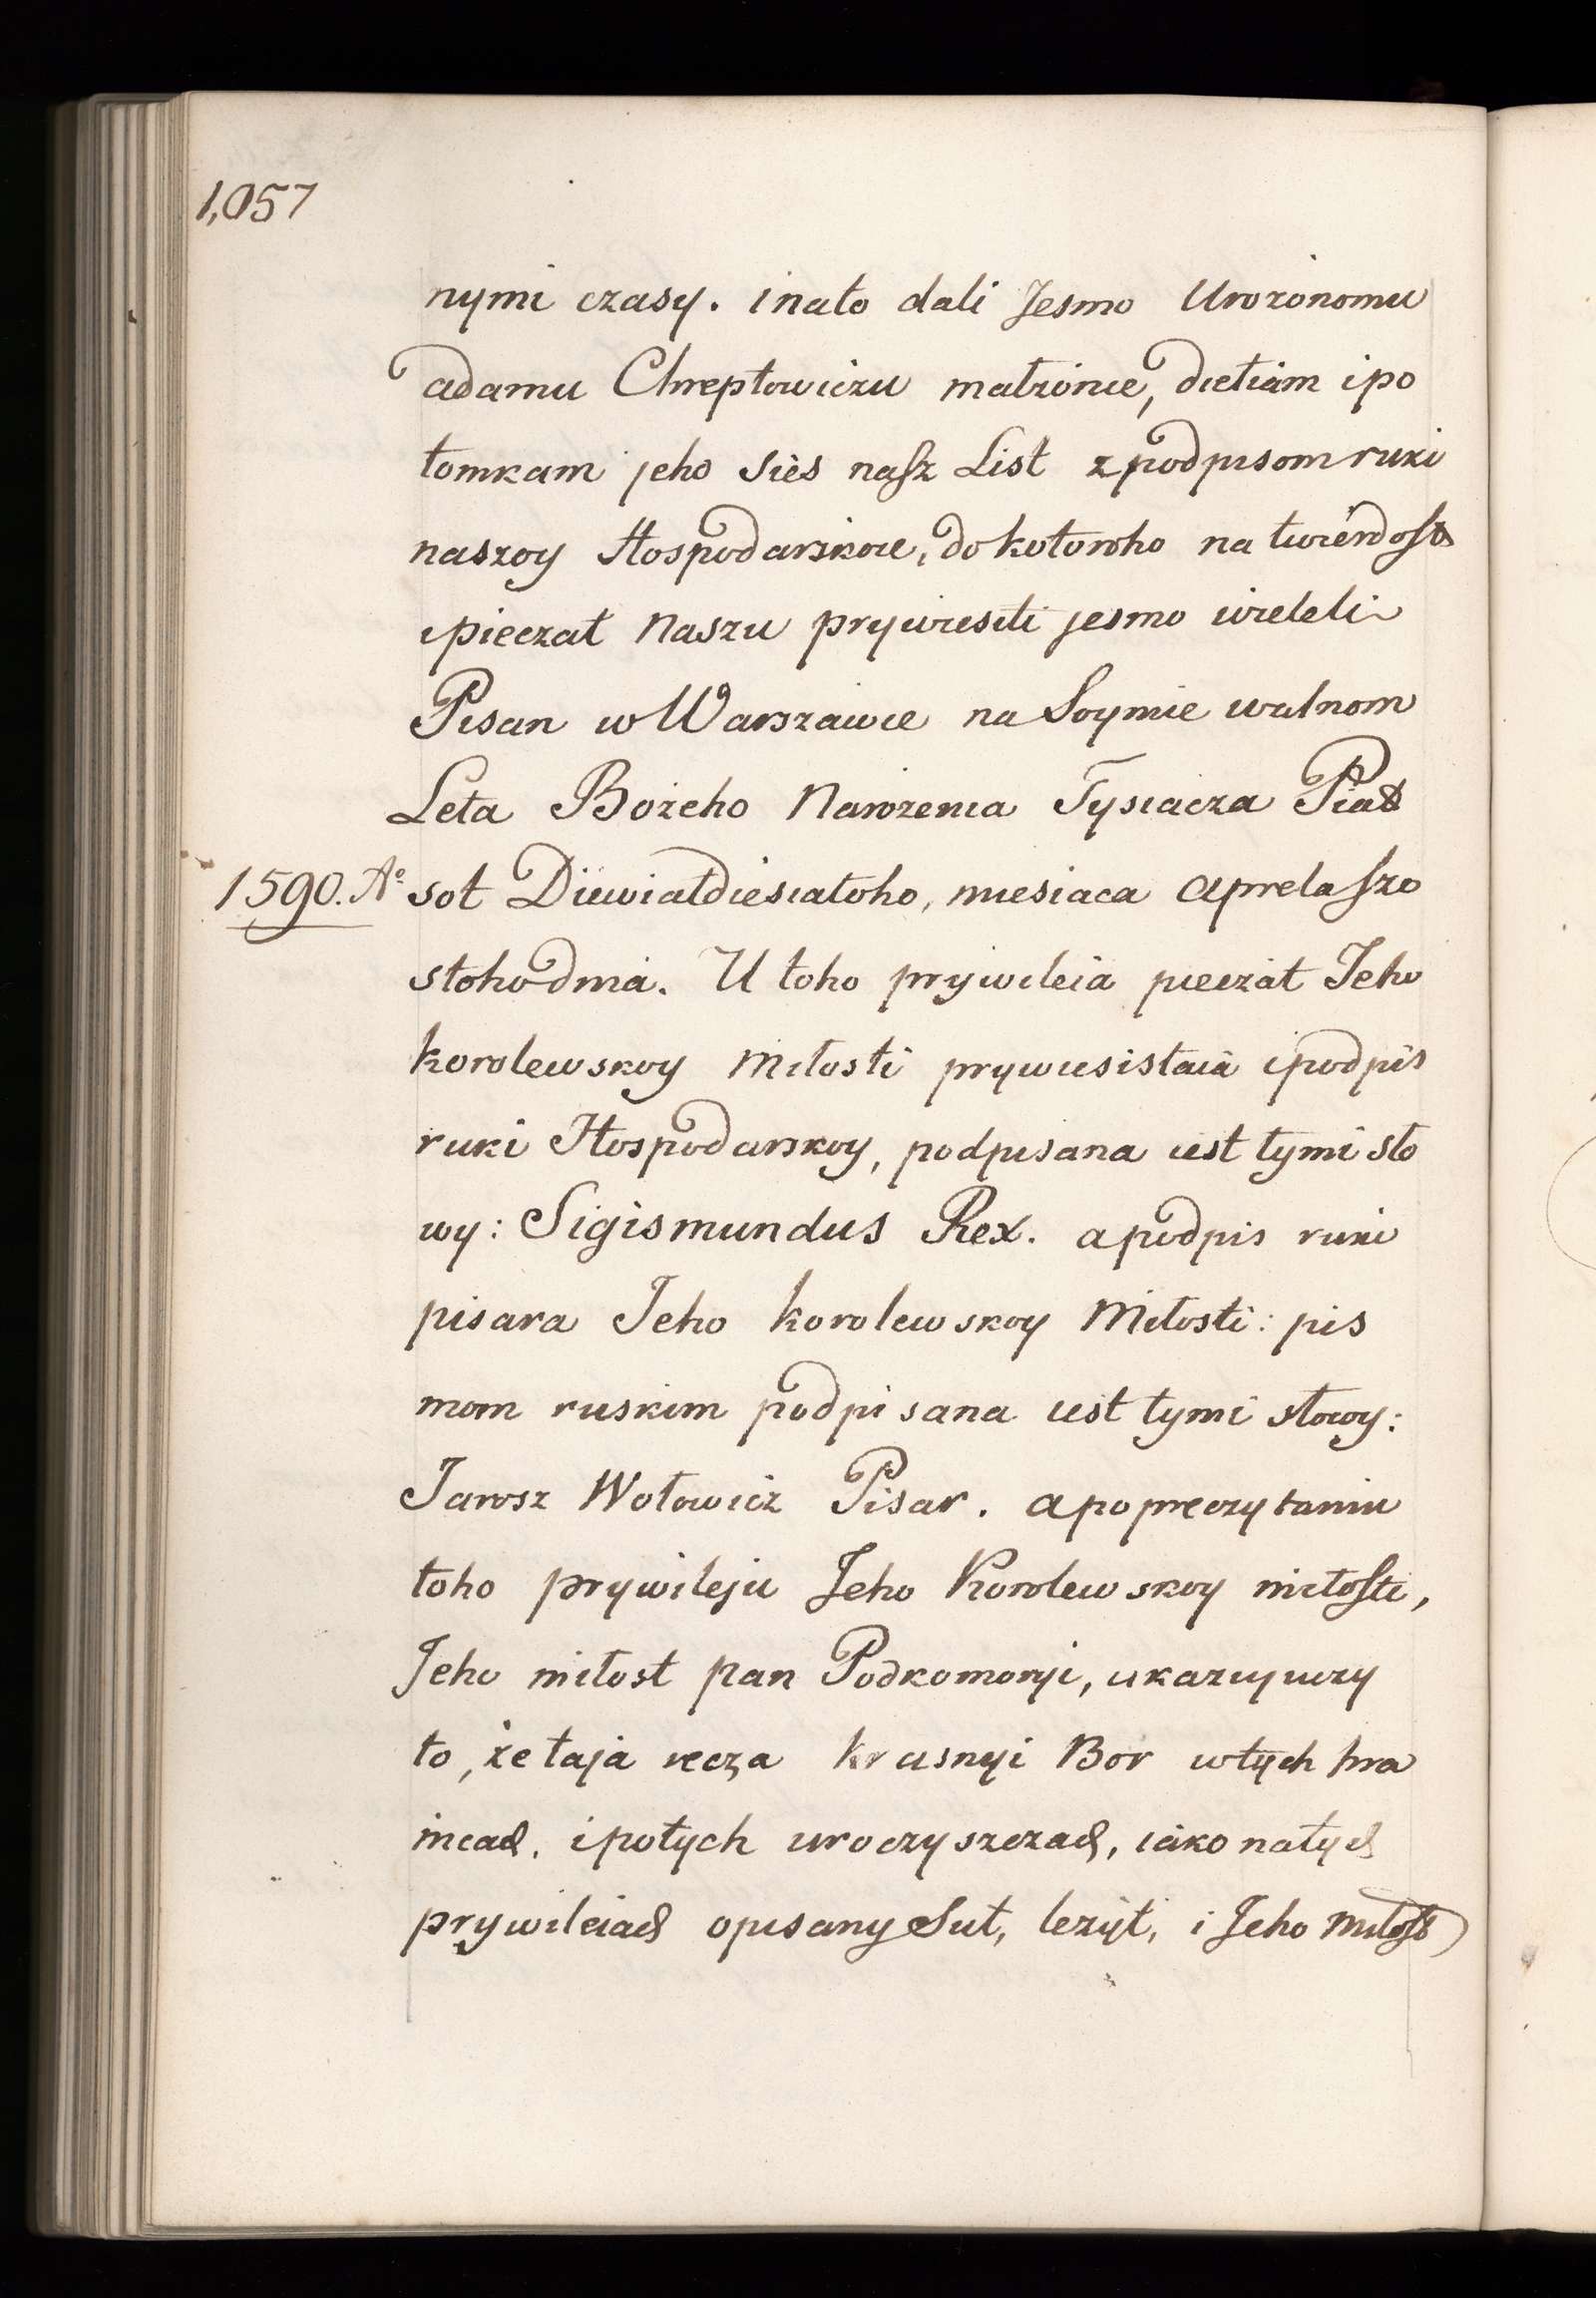 1,057
nymi czasy. inato dali Jesmo Urożonomu
adamu Chreptowiczu małżonie, dietiam i po
tomkam jeho sies naszʒ List z podpisom ruki
naszoy Hospodarskoie, do kotoroho na twerdost
i pieczat naszu prywiesiti jesmo wieleli
Pisan w Warszawie na Soymie walnom
Leta Bożeho Narożenia Tysiacza Piat
1590. Aº sot Diewiatdiesiatoho, miesiaca aprela szo
stoho dnia. U toho prywileia pieczat Jeho
korolewskoy Miłosti prywiesistaia i podpis
ruki Hospodarskoy, podpisana iest tymi sło
wy: Sigismundus Rex. a podpis ruki
pisara Jeho korolewskoy Miłosti: pis
mom ruskim podpisana iest tymi słowy:
Jarosz Wołowicz Pisar. a po preczytaniu
toho prywileju Jeho Korolewskoy miłosti,
Jeho miłost pan Podkomoryi, ukazujuczy
to, że taja recza krasnyi Bor w tych hra
nicach, i po tych uroczyszczach, iako na tych
prywileiach opisany Sut, leżyt, i Jeho miłost